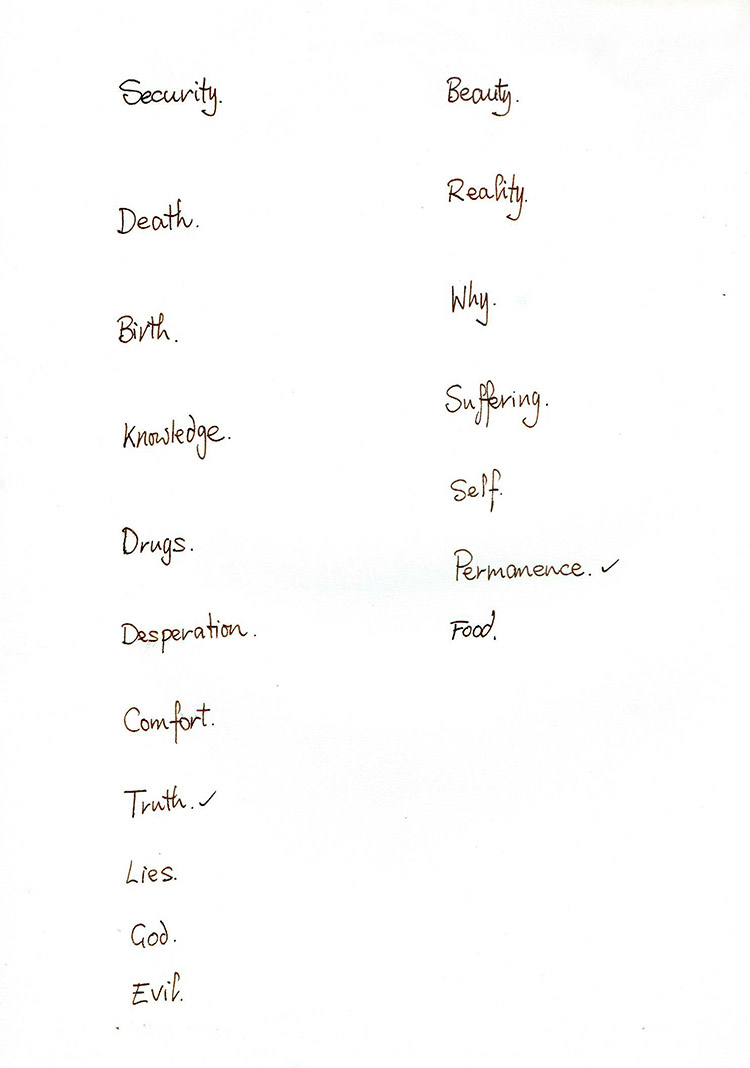 Security.
Death.
Birth.
Knowledge.
Drugs.
Desperation.
Comfort.
Truth. ✓
Lies.
God.
Evil.
Beauty.
Reality.
Why.
Suffering.
Self.
Permanence. ✓
Food.